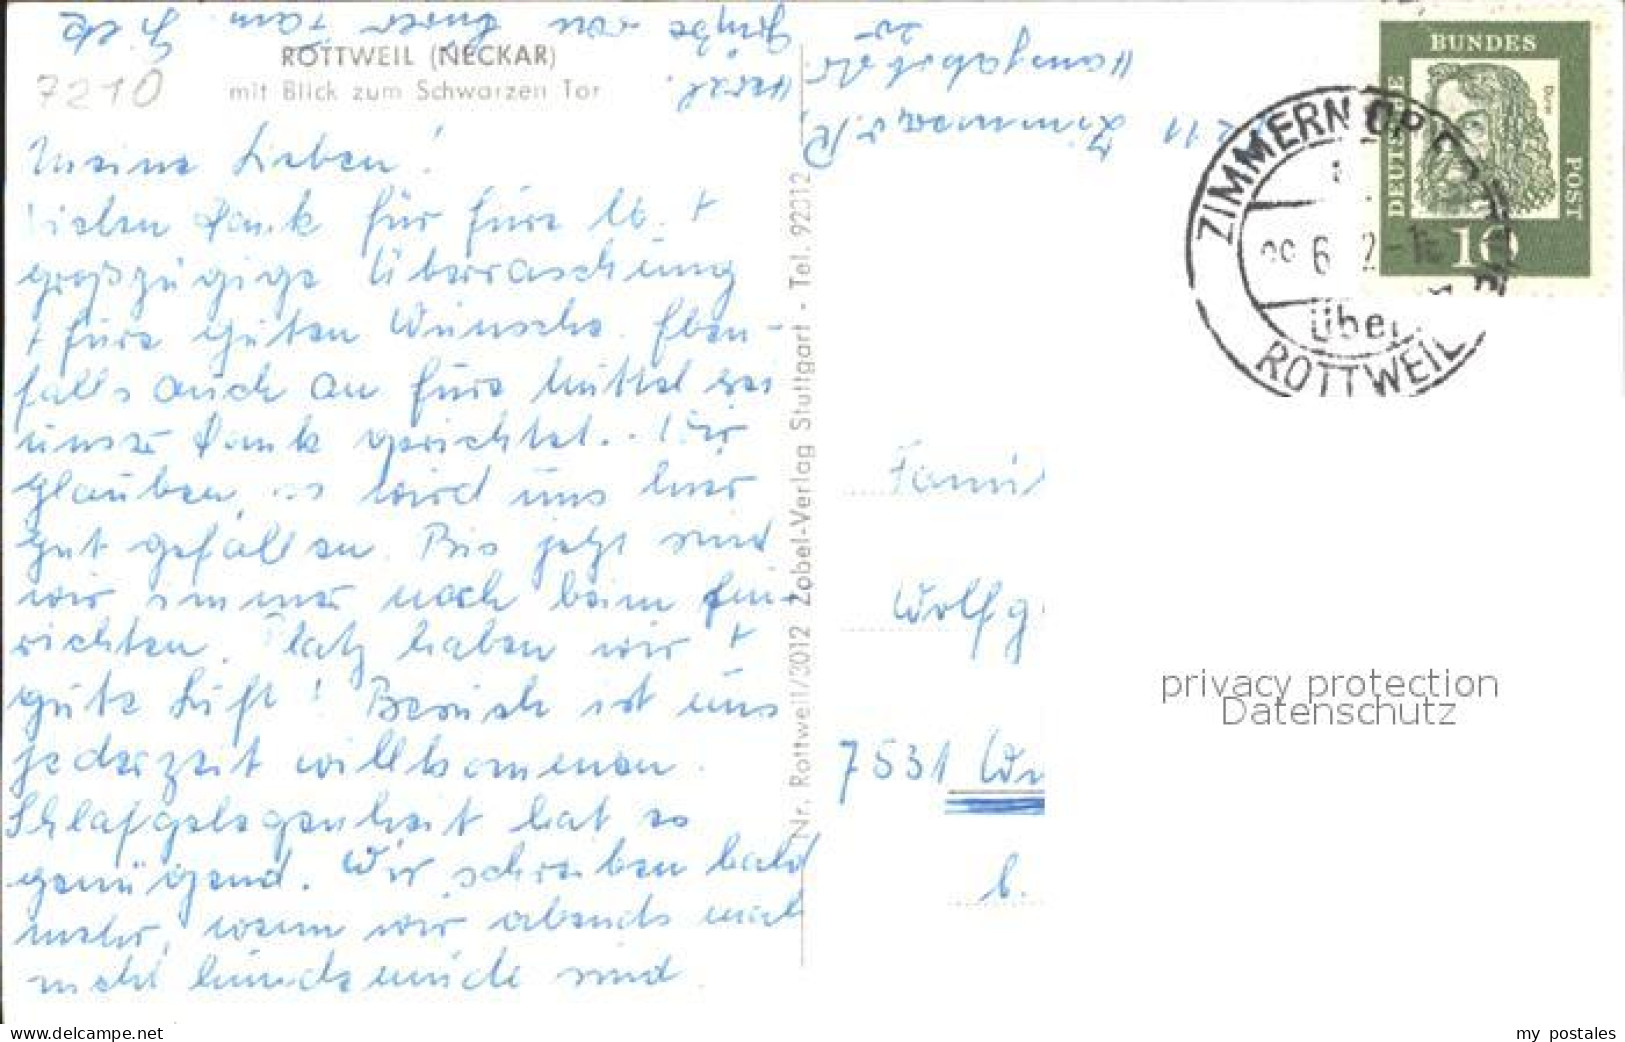 ROTTWEIL (NECKAR)
mit Blick zum Schwarzen Tor
7210
Meine Lieben!
Vielen Dank für Eure lb. +
großzügige Überraschung
+ Eure guten Wünsche. Eben-
falls auch an Eure Mutter sei
unser Dank gerichtet. Wir
glauben, es wird uns hier
gut gefallen. Bis jetzt sind
wir immer noch beim Ein-
richten. Platz haben wir +
gute Luft! Besuch ist uns
jederzeit willkommen.
Schlafgelegenheit hat es
genügend. Wir schreiben bald
mehr, wenn wir abends mal
nicht hundemüde sind
Herzl.
Grüße von Eurer Fam.
Nr. Rottweil/3012 Zobel-Verlag Stuttgart - Tel. 92312
BUNDES
DEUTSCHE
POST
Dürer
10
ZIMMERN OB ROTTWEIL
6
über
ROTTWEIL
Famil
Wolfg
7531
b.
privacy protection
Datenschutz
www.delcampe.net
my postales